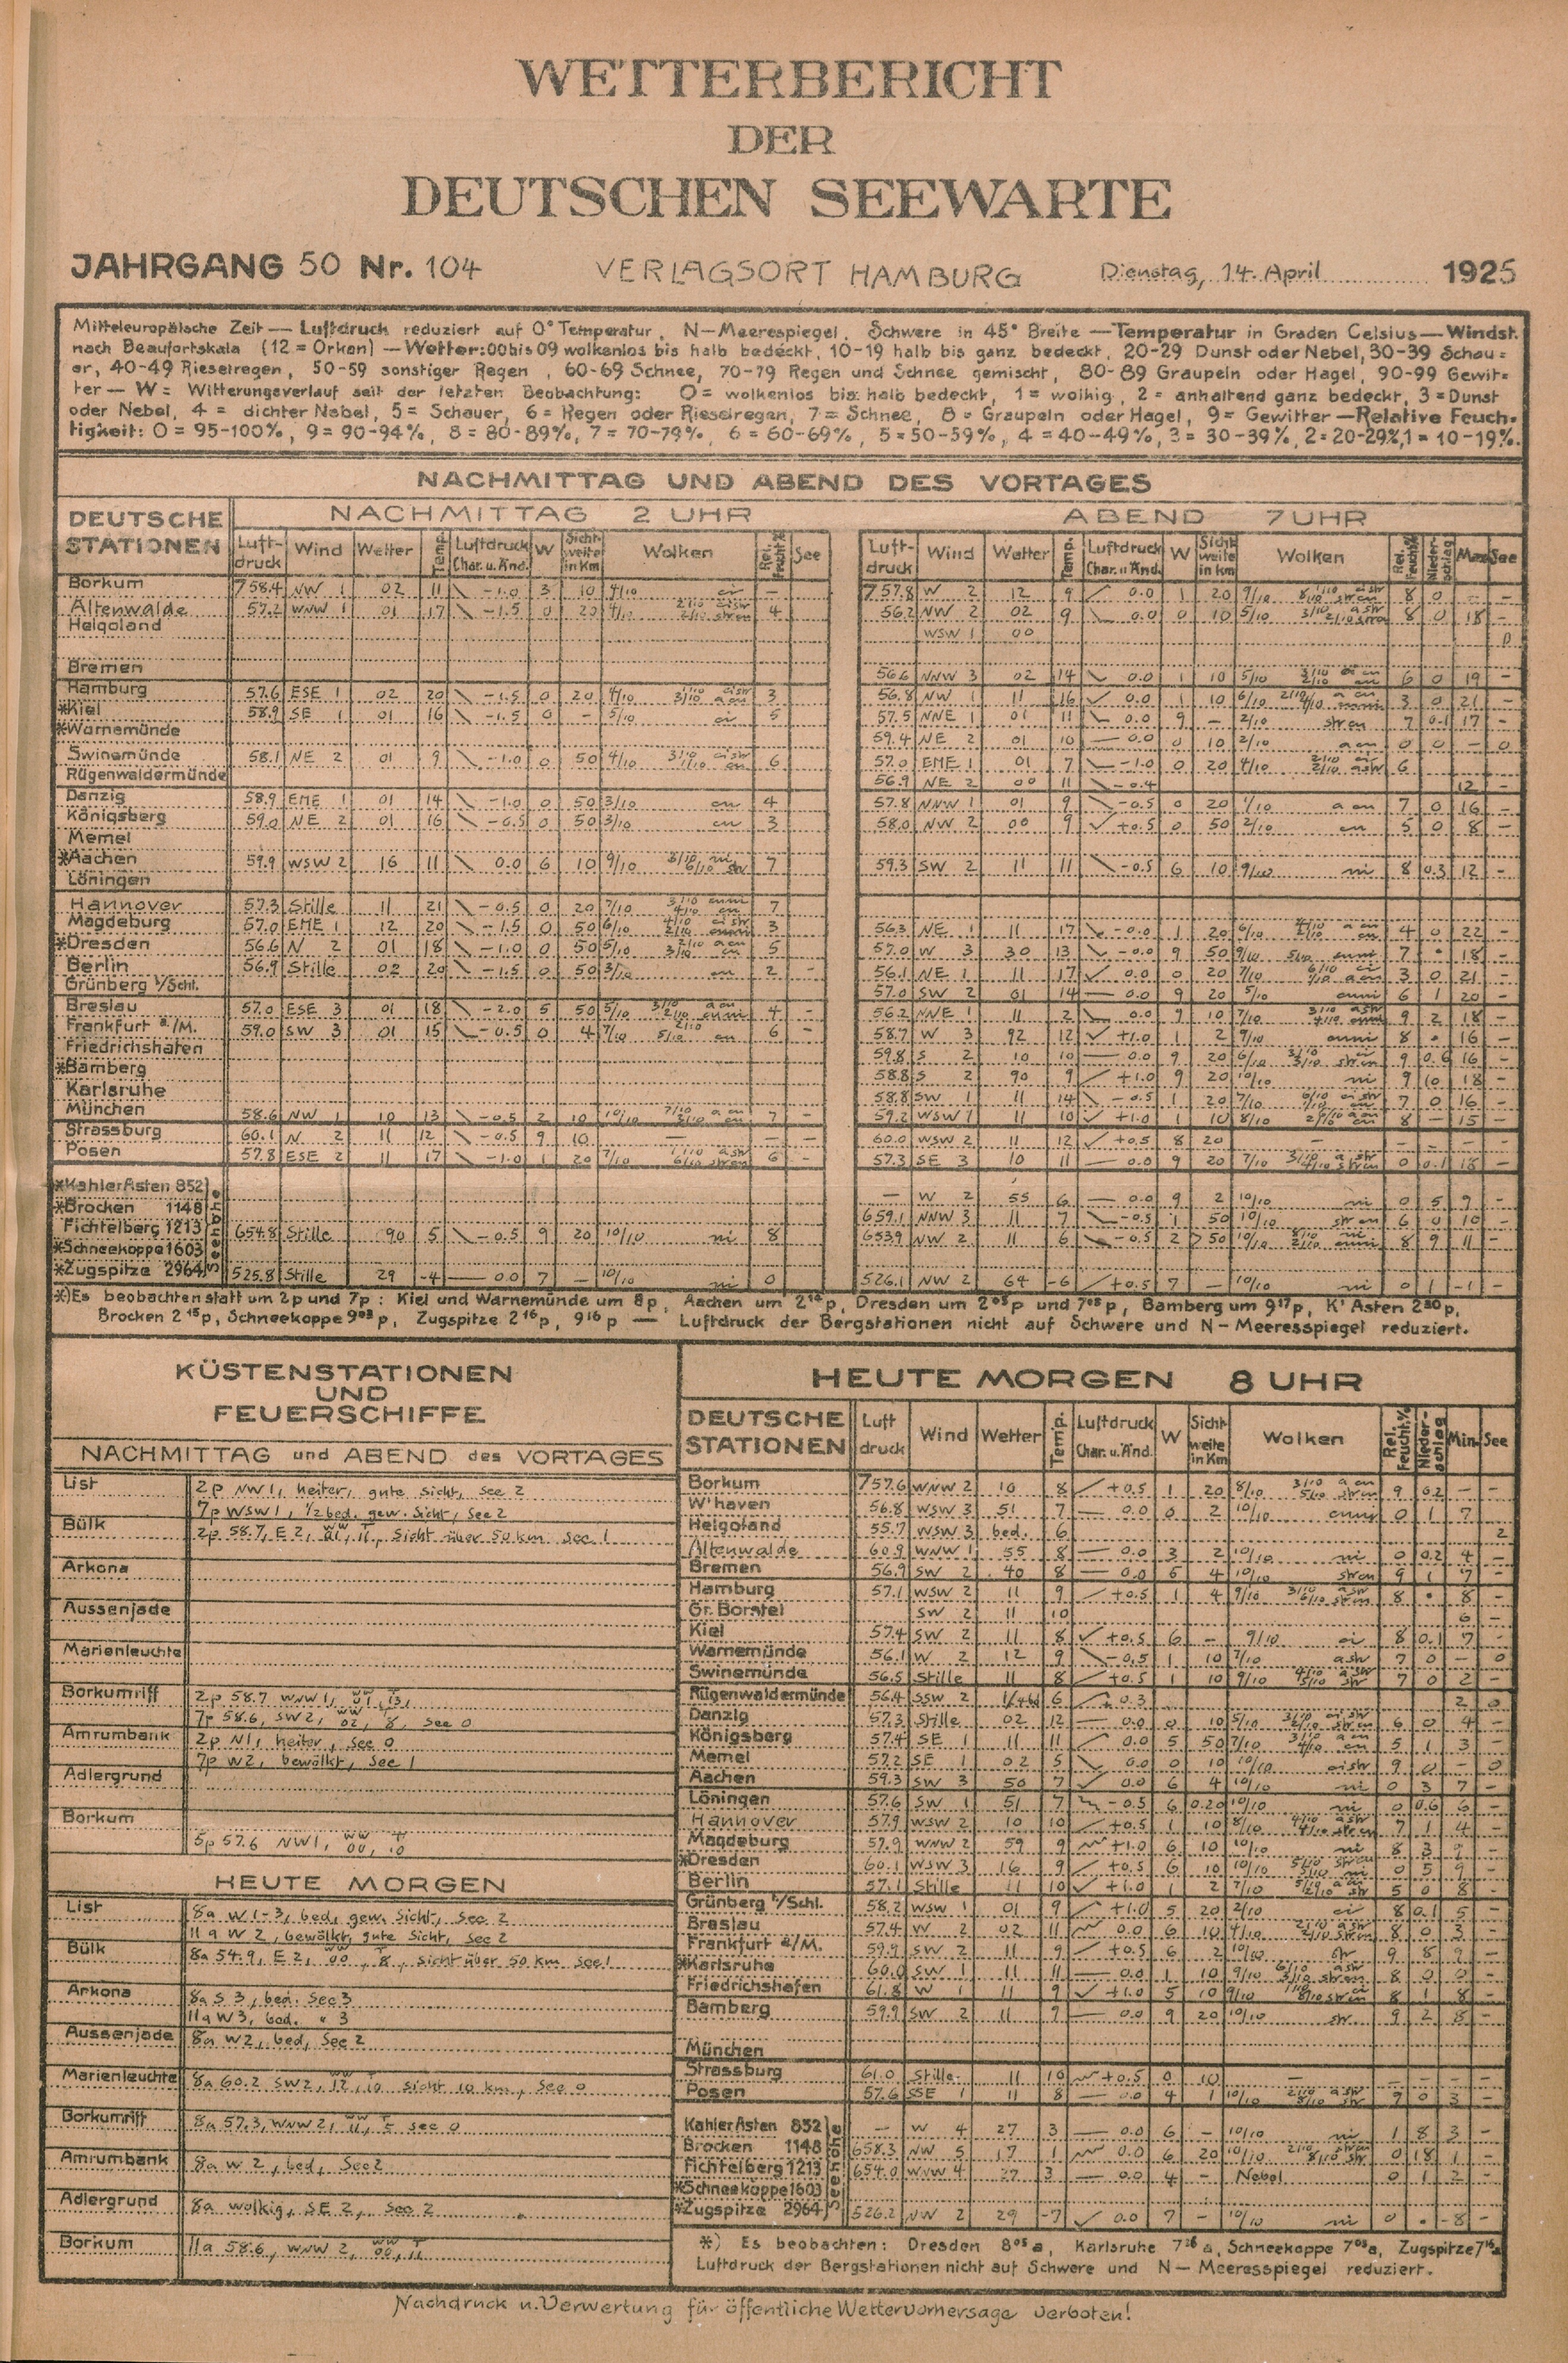 WETTERBERICHT
DER
DEUTSCHEN SEEWARTE
JAHRGANG 50 Nr. 104 VERLAGSORT HAMBURG Dienstag, 14. April 1925
Mitteleuropäische Zeit — Luftdruck reduziert auf 0° Temperatur, N—Meerespiegel, Schwere in 45° Breite — Temperatur in Graden Celsius — Windst.
nach Beaufortskala (12 = Orkan) — Wetter: 00 bis 09 wolkenlos bis halb bedeckt, 10-19 halb bis ganz bedeckt, 20-29 Dunst oder Nebel, 30-39 Schau=
er, 40-49 Rieselregen, 50-59 sonstiger Regen, 60-69 Schnee, 70-79 Regen und Schnee gemischt, 80-89 Graupeln oder Hagel, 90-99 Gewit=
ter — W = Witterungsverlauf seit der letzten Beobachtung: 0 = wolkenlos bis halb bedeckt, 1 = wolkig, 2 = anhaltend ganz bedeckt, 3 = Dunst
oder Nebel, 4 = dichter Nebel, 5 = Schauer, 6 = Regen oder Rieselregen, 7 = Schnee, 8 = Graupeln oder Hagel, 9 = Gewitter — Relative Feuch-
tigkeit: 0 = 95-100%, 9 = 90-94%, 8 = 80-89%, 7 = 70-79%, 6 = 60-69%, 5 = 50-59%, 4 = 40-49%, 3 = 30-39%, 2 = 20-29%, 1 = 10-19%.
NACHMITTAG UND ABEND DES VORTAGES
DEUTSCHE STATIONEN NACHMITTAG 2 UHR ABEND 7 UHR
Luftdruck Wind Wetter Temp. Luftdruck Char. u. Änd. W Sichtweite in Km Wolken Rel. Feucht.% See Luftdruck Wind Wetter Temp. Luftdruck Char. u. Änd. W Sichtweite in Km Wolken Rel. Feucht.% Niederschlag Max See
Borkum 758.4 NW 1 02 11 -1.0 3 10 4/10 757.8 W 2 12 9 0.0 1 20 9/10 8 0
Altenwalde 57.2 WNW 1 01 17 -1.5 0 20 4/10 4 56.2 NW 2 02 9 0.0 0 10 5/10 8 0 18
Helgoland WSW 1 00
Bremen 56.6 NNW 3 02 14 0.0 1 10 5/10 6 0 19
Hamburg 57.6 ESE 1 02 20 -1.5 0 20 4/10 3 56.8 NW 1 11 16 0.0 1 10 6/10 3 0 21
*Kiel 58.9 SE 1 01 16 -1.5 0 - 5/10 ci 5 57.5 NNE 1 01 11 0.0 9 - 2/10 strcu 7 0.1 17
*Warnemünde 59.4 NE 2 01 10 0.0 0 10 2/10 a cu 0 0 - 0
Swinemünde 58.1 NE 2 01 9 -1.0 0 50 4/10 6 57.0 ENE 1 01 7 -1.0 0 20 4/10 6
Rügenwaldermünde 56.9 NE 2 00 11 -0.4 12
Danzig 58.9 ENE 1 01 14 -1.0 0 50 3/10 cu 4 57.8 NNW 1 01 9 -0.5 0 20 1/10 a cu 7 0 16
Königsberg 59.0 NE 2 01 16 -0.5 0 50 3/10 cu 3 58.0 NW 2 00 9 +0.5 0 50 2/10 cu 5 0 8
Memel
*Aachen 59.9 WSW 2 16 11 0.0 6 10 9/10 7 59.3 SW 2 11 11 -0.5 6 10 9/10 ni 8 0.3 12
Löningen
Hannover 57.3 Stille 11 21 -0.5 0 20 7/10 7
Magdeburg 57.0 ENE 1 12 20 -1.5 0 50 6/10 3 56.3 NE 1 11 17 -0.0 1 20 6/10 4 0 22
*Dresden 56.6 N 2 01 18 -1.0 0 50 5/10 5 57.0 W 3 30 13 -0.0 9 50 9/10 7 18
Berlin 56.9 Stille 02 20 -1.5 0 50 3/10 cu 2 - 56.1 NE 1 11 17 0.0 0 20 7/10 3 0 21
Grünberg i/Schl. 57.0 SW 2 01 14 0.0 9 20 5/10 cuni 6 1 20
Breslau 57.0 ESE 3 01 18 -2.0 5 50 5/10 4 - 56.2 NNE 1 11 2 0.0 9 10 7/10 9 2 18
Frankfurt a./M. 59.0 SW 3 01 15 -0.5 0 4 7/10 6 - 58.7 W 3 92 12 +1.0 1 2 9/10 cuni 8 16
Friedrichshafen 59.8 S 2 10 10 0.0 9 20 6/10 9 0.6 16
*Bamberg 58.8 S 2 90 9 +1.0 9 20 10/10 ni 9 10 18
Karlsruhe 58.8 SW 1 11 14 -0.5 1 20 7/10 7 0 16
München 58.6 NW 1 10 13 -0.5 2 10 10/10 7 - 59.2 WSW 1 11 10 +1.0 1 10 8/10 8 - 15
Strassburg 60.1 N 2 11 12 -0.5 9 10 - - - 60.0 WSW 2 11 12 +0.5 8 20
Posen 57.8 ESE 2 11 17 -1.0 1 20 7/10 6 - 57.3 SE 3 10 11 0.0 9 20 7/10 0 0.1 18
*Kahler Asten 852 - W 2 55 6 0.0 9 2 10/10 ni 0 5 9
*Brocken 1148 659.1 NNW 3 11 7 -0.5 1 50 10/10 strcu 6 0 10
Fichtelberg 1213 654.8 Stille 90 5 -0.5 9 20 10/10 ni 8 653.9 NW 2 11 6 -0.5 2 >50 10/10 8 9 11
*Schneekoppe 1603
*Zugspitze 2964 525.8 Stille 29 -4 0.0 7 - 10/10 ni 0 526.1 NW 2 64 -6 +0.5 7 - 10/10 ni 0 1 -1
Seehöhe
*) Es beobachten statt um 2p und 7p: Kiel und Warnemünde um 8p, Aachen um 2¹⁴p, Dresden um 2⁰⁵p und 7⁰⁵p, Bamberg um 9¹⁷p, K' Asten 2³⁰p,
Brocken 2¹⁵p, Schneekoppe 9⁰³p, Zugspitze 2¹⁶p, 9¹⁶p — Luftdruck der Bergstationen nicht auf Schwere und N—Meeresspiegel reduziert.
KÜSTENSTATIONEN
UND
FEUERSCHIFFE
NACHMITTAG und ABEND des VORTAGES
List 2p NW1, heiter, gute Sicht, See 2
7p WSW1, 1/2 bed. gew. Sicht, See 2
Bülk 2p 58.7, E 2, Sicht über 50 km See 1
Arkona
Aussenjade
Marienleuchte
Borkumriff 2p 58.7 WNW1, 01, 13,
7p 58.6, SW2, 02, 8, See 0
Amrumbank 2p N1, heiter, See 0
7p W2, bewölkt, See 1
Adlergrund
Borkum
5p 57.6 NW1, 00, 10
HEUTE MORGEN
List 8a W 1-3, bed, gew. Sicht, See 2
11a W 2, bewölkt, gute Sicht, See 2
Bülk 8a 54.9, E 2, 00, 8, Sicht über 50 km See 1
Arkona 8a S 3, bed. See 3
11a W3, bed. " 3
Aussenjade 8a W2, bed, See 2
Marienleuchte 8a 60.2 SW2, 12, 10 Sicht 10 km, See 0
Borkumriff 8a 57.3, WNW 2, 11, 5 See 0
Amrumbank 8a W 2, bed, See 2
Adlergrund 8a wolkig, SE 2, See 2
Borkum 11a 58.6, WNW 2, 00, 11
HEUTE MORGEN 8 UHR
DEUTSCHE STATIONEN Luftdruck Wind Wetter Temp. Luftdruck Char. u. Änd. W Sichtweite in Km Wolken Rel. Feucht.% Niederschlag Min See
Borkum 757.6 WNW 2 10 8 +0.5 1 20 8/10 9 0.2
W'haven 56.8 WSW 3 51 7 0.0 0 2 10/10 0 1 7
Helgoland 55.7 WSW 3 bed. 6 2
Altenwalde 60.9 WNW 1 55 8 0.0 3 2 10/10 ni 0 0.2 4
Bremen 56.9 SW 2 40 8 0.0 6 4 10/10 strcu 9 1 7
Hamburg 57.1 WSW 2 11 9 +0.5 1 4 9/10 8 8
Gr. Borstel SW 2 11 10 6
Kiel 57.4 SW 2 11 8 +0.5 6 - 9/10 ci 8 0.1 7
Warnemünde 56.1 W 2 12 9 -0.5 1 10 7/10 astr 7 0 - 0
Swinemünde 56.5 Stille 11 8 +0.5 1 10 9/10 7 0 2
Rügenwaldermünde 56.4 SSW 2 6 0.3 2 0
Danzig 57.3 Stille 02 12 0.0 0 10 5/10 6 0 4
Königsberg 57.4 SE 1 11 11 0.0 5 50 7/10 5 1 3
Memel 57.2 SE 1 02 5 0.0 0 10 10/10 cistr 9 0 - 0
Aachen 59.3 SW 3 50 7 0.0 6 4 10/10 ni 0 3 7
Löningen 57.6 SW 1 51 7 -0.5 6 0.20 10/10 ni 0 0.6 6
Hannover 57.9 WSW 2 10 10 +0.5 1 10 8/10 7 1 4
Magdeburg 57.9 WNW 2 59 9 +1.0 6 10 10/10 ni 8 3 9
*Dresden 60.1 WSW 3 16 9 +0.5 6 10 10/10 0 5 9
Berlin 57.1 Stille 11 10 +1.0 1 2 7/10 5 0 8
Grünberg i/Schl. 58.2 WSW 1 01 9 +1.0 5 20 2/10 ci 8 0.1 5
Breslau 57.4 W 2 02 11 0.0 6 10 4/10 8 0 3
Frankfurt a/M. 59.9 SW 2 11 9 +0.5 6 2 10/10 str 9 8 9
*Karlsruhe 60.0 SW 1 11 11 0.0 1 10 9/10 8 0
Friedrichshafen 61.8 W 1 11 9 +1.0 5 10 9/10 8 1 8
Bamberg 59.9 SW 2 11 9 0.0 9 20 10/10 str 9 2 8
München
Strassburg 61.0 Stille 11 10 +0.5 0 10
Posen 57.6 SSE 1 11 8 0.0 4 1 10/10 9 0 3
Kahler Asten 852 - W 4 27 3 0.0 6 - 10/10 ni 1 8 3
Brocken 1148 658.3 NW 5 17 1 0.0 6 20 10/10 0 18 1
Fichtelberg 1213 654.0 WNW 4 27 3 0.0 4 - Nebel 0 1 2
*Schneekoppe 1603
*Zugspitze 2964 526.2 NW 2 29 -7 0.0 7 - 10/10 ni 0 -8
Seehöhe
*) Es beobachten: Dresden 8⁰⁵a, Karlsruhe 7²⁶a, Schneekoppe 7⁰³a, Zugspitze 7¹⁶a
Luftdruck der Bergstationen nicht auf Schwere und N—Meeresspiegel reduziert.
Nachdruck u. Verwertung für öffentliche Wettervorhersage verboten!